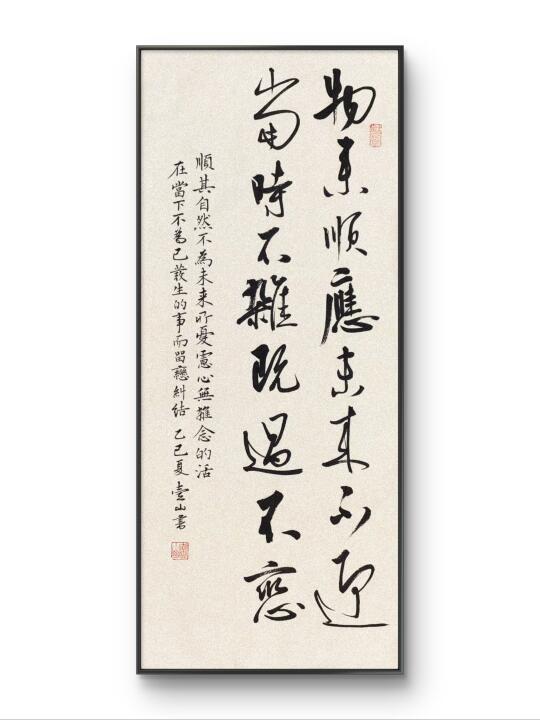 物来順應未来不迎
當時不雜既過不戀
順其自然不為未来所憂慮心無雜念的活
在當下不為已發生的事而留戀糾結 乙巳夏 壹山書